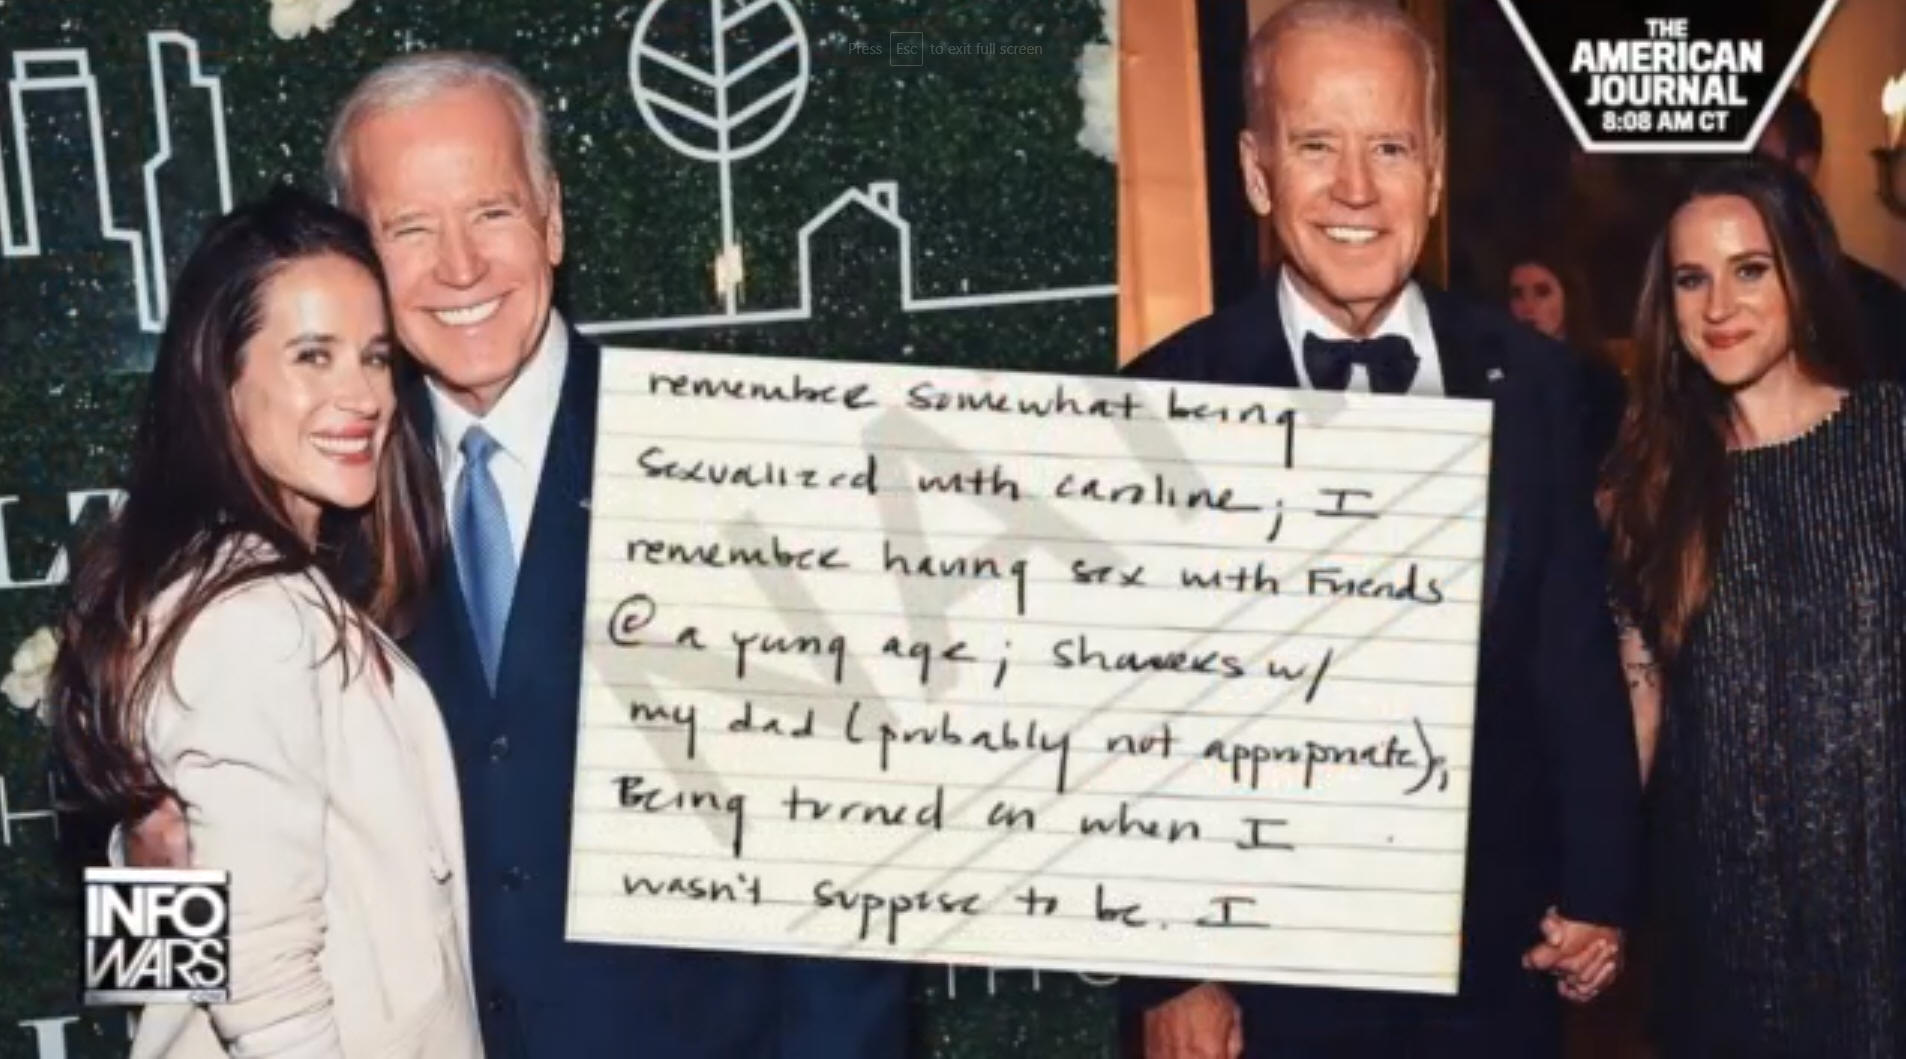 Press Esc to exit full screen
THE
AMERICAN
JOURNAL
8:08 AM CT
remember somewhat being
sexualized with caroline; I
remember having sex with Friends
@ a yung age; showers w/
my dad (probably not appropriate);
Being turned on when I
wasn't suppose to be. I
INFO
WARS